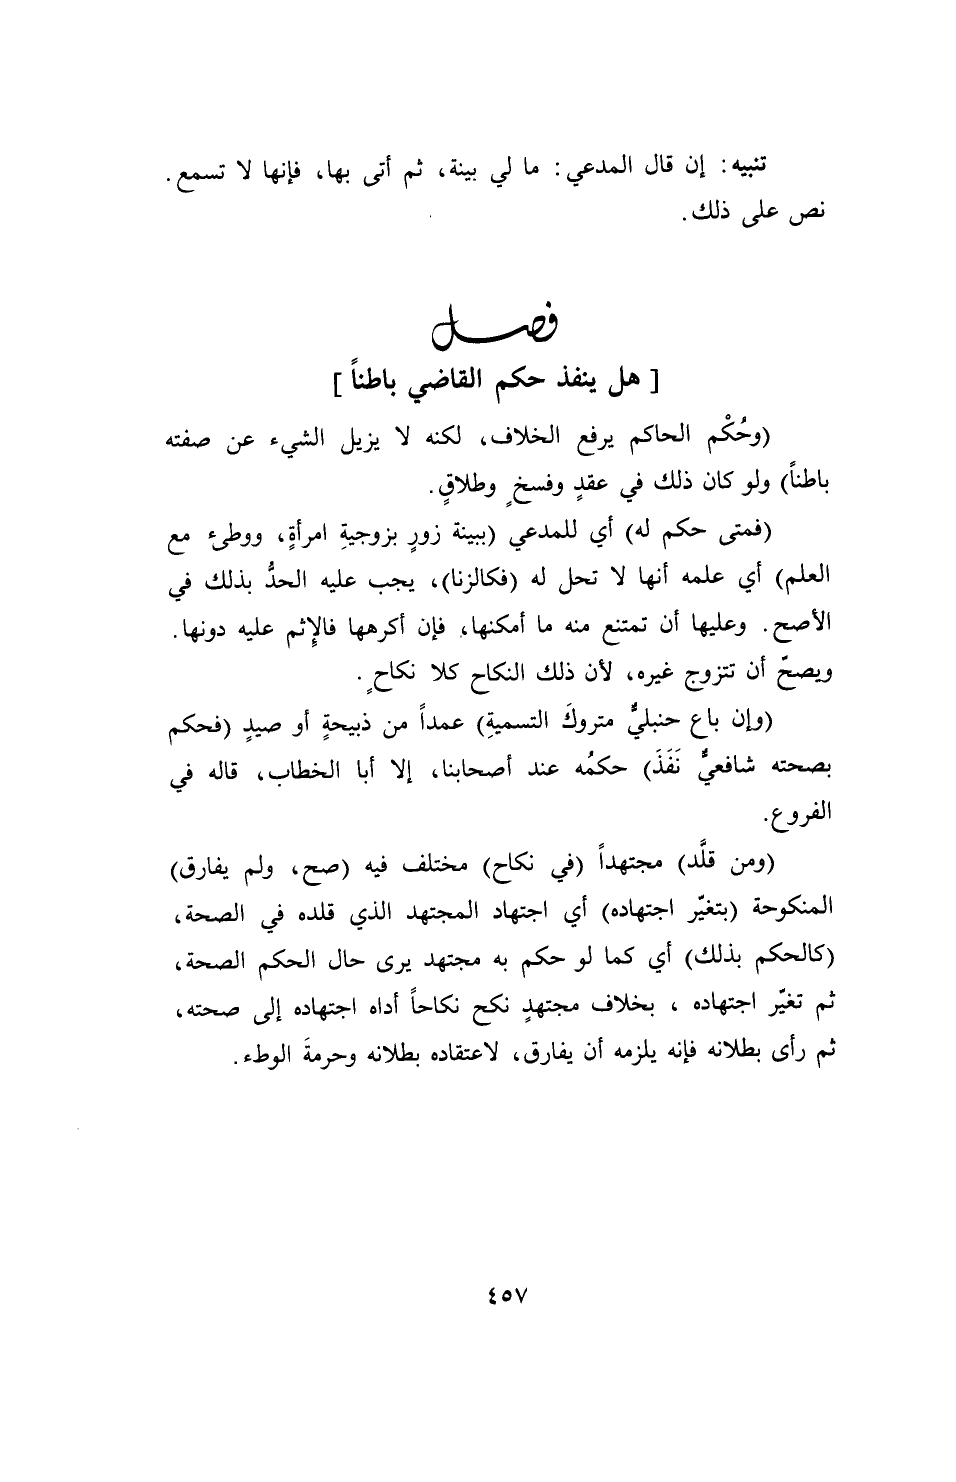 تنبيه: إن قال المدعي: ما لي بينة، ثم أتى بها، فإنها لا تسمع.
نص على ذلك.
فصل
[ هل ينفذ حكم القاضي باطناً ]
(وحُكْم الحاكم يرفع الخلاف، لكنه لا يزيل الشيء عن صفته
باطناً) ولو كان ذلك في عقدٍ وفسخٍ وطلاقٍ.
(فمتى حكم له) أي للمدعي (ببينة زورٍ بزوجيةِ امرأةٍ، ووطىء مع
العلم) أي علمه أنها لا تحل له (فكالزنا)، يجب عليه الحدُّ بذلك في
الأصح. وعليها أن تمتنع منه ما أمكنها، فإن أكرهها فالإِثم عليه دونها.
ويصحّ أن تتزوج غيره، لأن ذلك النكاح كلا نكاحٍ.
(وإن باع حنبليٌّ متروكَ التسميةِ) عمداً من ذبيحةٍ أو صيدٍ (فحكم
بصحته شافعيٌّ نَفَذَ) حكمُه عند أصحابنا، إلا أبا الخطاب، قاله في
الفروع.
(ومن قلَّد) مجتهداً (في نكاح) مختلف فيه (صح، ولم يفارق)
المنكوحة (بتغيّر اجتهاده) أي اجتهاد المجتهد الذي قلده في الصحة،
(كالحكم بذلك) أي كما لو حكم به مجتهد يرى حال الحكم الصحة،
ثم تغيّر اجتهاده ، بخلاف مجتهدٍ نكح نكاحاً أداه اجتهاده إلى صحته،
ثم رأى بطلانه فإنه يلزمه أن يفارق، لاعتقاده بطلانه وحرمةَ الوطء.
٤٥٧